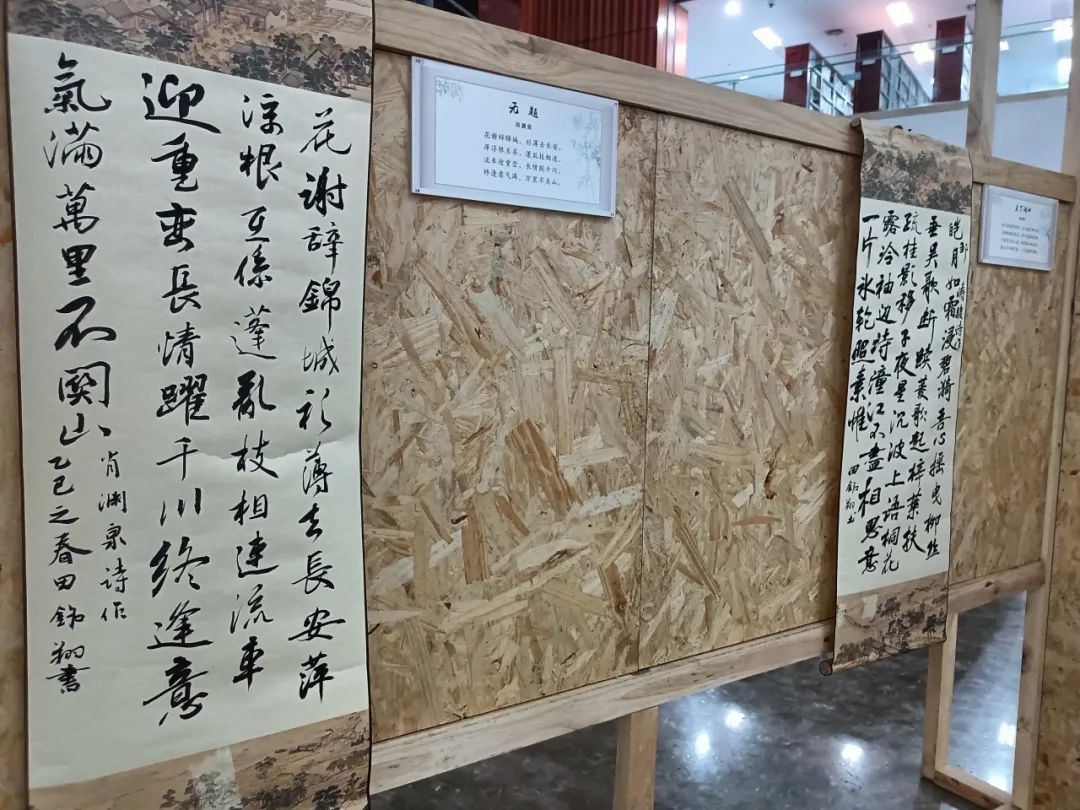 花謝辭錦城衫薄去長安萍
浮根互係蓬亂枝相連流車
迎重峦長情躍千川終逢意
氣滿萬里不関山
肖渊泉詩作
乙巳之春田銘翔書
无题
肖渊泉
花谢辞锦城，衫薄去长安。
萍浮根互系，蓬乱枝相连。
流车迎重峦，长情跃千川。
终逢意气满，万里不关山。
皓月如霜浸碧漪吾心摇曳柳丝
垂吴歌断续菱歌起梓葉扶
疏桂影移子夜星沉波上语桐花
露冷袖边诗潼江不盡相思意
一片冰轮照素帷
田銘翔书